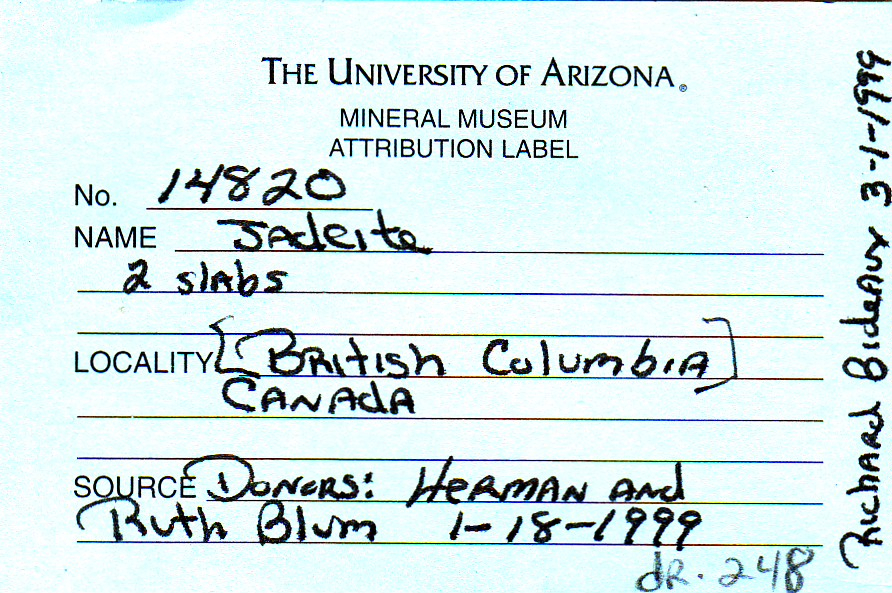 THE UNIVERSITY OF ARIZONA®
MINERAL MUSEUM
ATTRIBUTION LABEL
No. 14820
NAME Jadeite
2 slabs
LOCALITY [British Columbia]
CANADA
SOURCE Donors: Herman and
Ruth Blum 1-18-1999
dr. 248
Richard Bideaux 3-1-1999